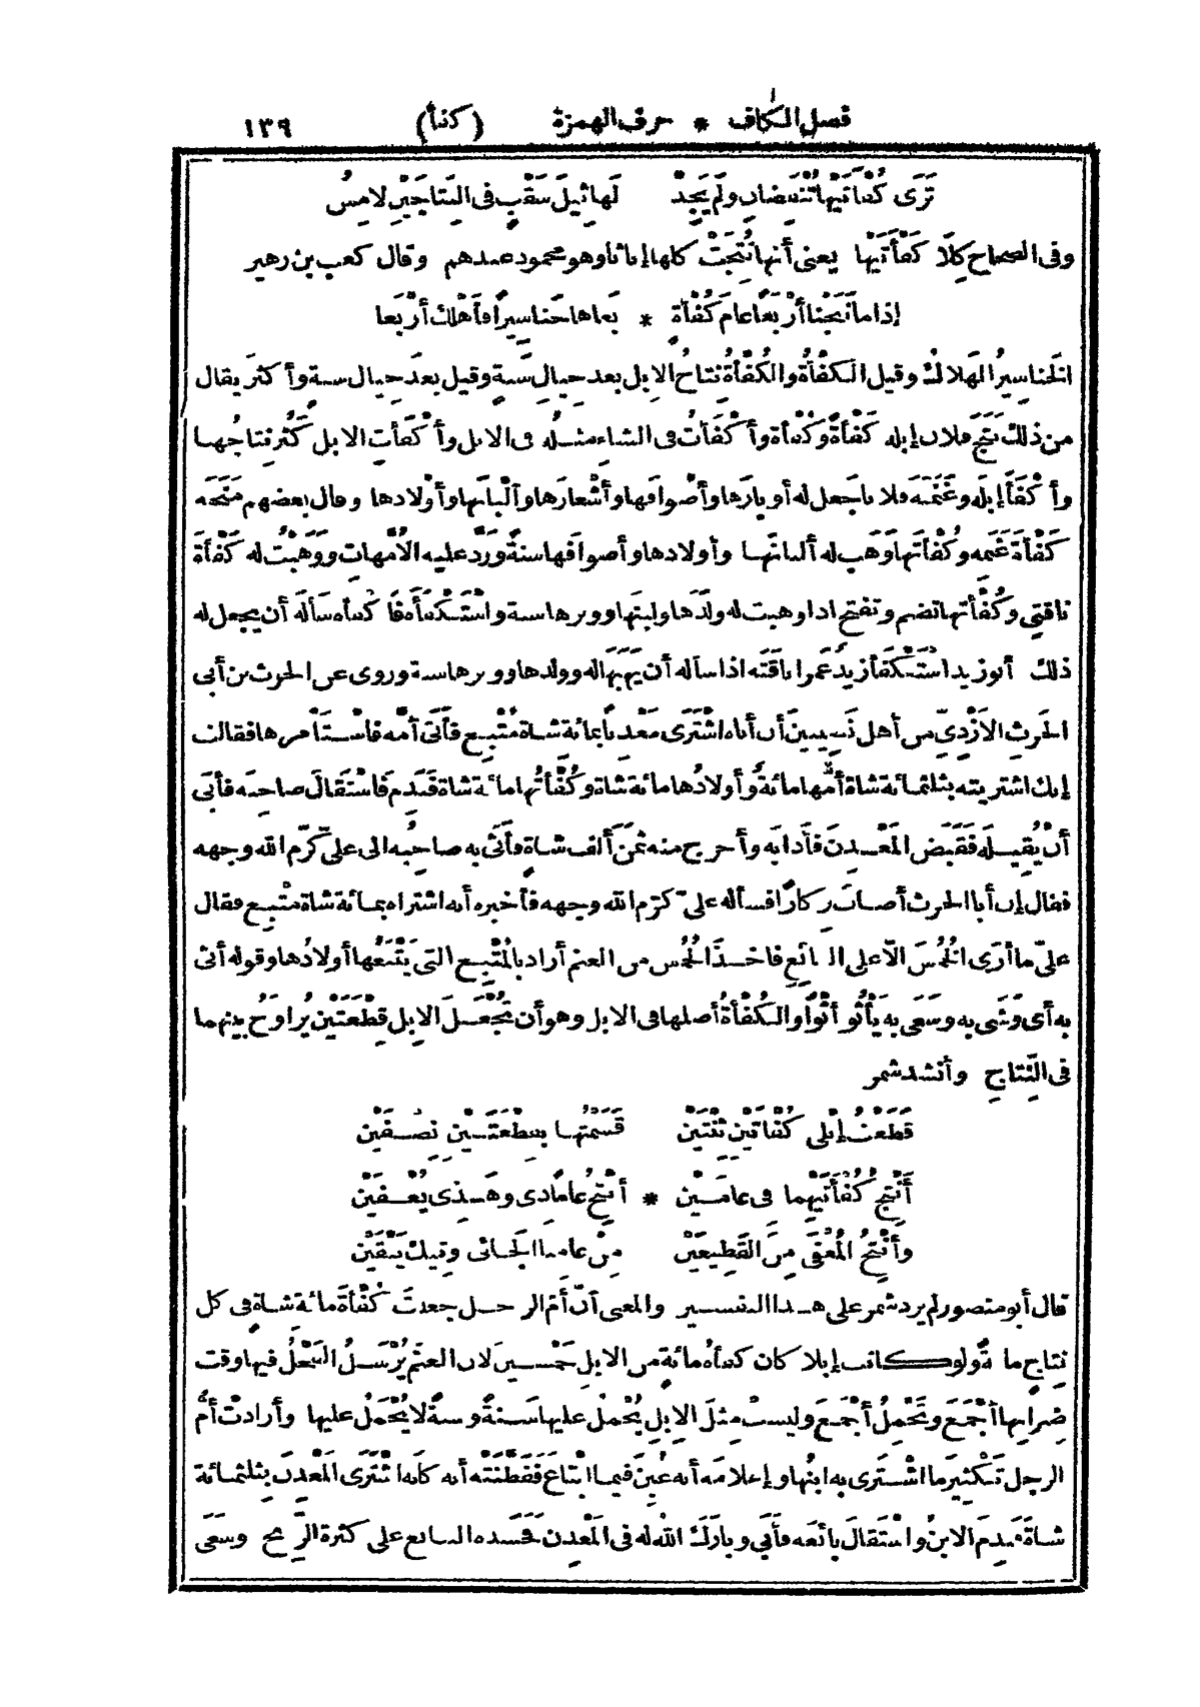 فصل الكاف * حرف الهمزة (كفأ) ١٣٩
تَرَى كُفْأَتَيْهَا تُنْفِضَانِ ولَمْ يَجِدْ لَها ثِيلَ سَقْبٍ فى النِّتَاجَيْنِ لامِسُ
وفى الصحاح كِلَا كَفْأَتَيْها يعنى أنها نُتِجَتْ كلها إناثا وهو محمود عندهم وقال كعب بن زهير
إذا ما نَتَجْنا أَرْبَعًا عامَ كُفْأَةٍ * بَغاها خَناسيرًا فأَهْلَكَ أَرْبَعا
الخَناسِيرُ الهَلاكُ وقيل الكَفْأَةُ والكُفْأَةُ نِتاجُ الابِل بعد حِيالِ سَنَةٍ وقيل بعدَ حِيالِ سنةٍ وأكثرَ يقال
من ذلك نَتَجَ فلان إبله كَفْأَةً وكُفْأَةً وأَكْفَأْتُ فى الشاء مثْلُه فى الابل وأَكْفَأَتِ الابل كَثُر نِتاجُها
وأَكْفَأَ إبِلَه وغَنَمَه فلانا جَعل له أوبارَها وأَصْوافَها وأَشْعارَها وأَلْبانَها وأَوْلادَها وقال بعضهم مَنَحَه
كَفْأَةَ غَنَمِه وكُفْأَتَها وَهَب له ألبانَها وأولادها وأصوافَها سنةً ورَدَّ عليه الأُمَّهاتِ ووَهَبْتُ له كَفْأَةَ
ناقتِى وكُفْأَتها تضم وتفتح اذا وهبت له ولَدَها ولبنَها ووبرها سنة واسْتَكْفَأَه فَأَكْفَأَه سَأَلَه أن يجعل له
ذلك أبو زيد اسْتَكْفَأَ زيدٌ عَمرا ناقَتَه اذا سأله أن يَهَبَها له وولدها ووبرها سنة وروى عن الحرث بن أبى
الحَرِث الاَزْدِىِّ من أهل نَصِيبِينَ أن أباه اشْتَرَى مَعْدِنًا بمائة شاة مُتْبِعٍ فأَتَى أُمَّه فاسْتَأْمَرها فقالت
إنك اشتريته بثلثمائة شاة أُمّها مائةٌ وأولادُها مائة شاة وكُفْأَتُها مائة شاة فَنَدِمَ فاسْتَقَالَ صاحبَه فأبَى
أنْ يُقِيلَه فَقَبَضَ المَعْدِنَ فأَذابَه وأخرج منه ثمنَ ألف شاةٍ فأَثَى به صاحبُه الى علىّ كَرَّمَ الله وجهه
فقال إن أبا الحرث أصابَ رِكازًا فسأله علىّ كرّم الله وجهه فأخبره أنه اشتراه بمائة شاة مُتْبِعٍ فقال
علىّ ما أَرَى الخُمُسَ الّا على البائِعِ فأَخَذَ الخُمُسَ من الغنم أراد بالمُتْبِع التى يَتْبَعُها أولادُها وقوله أثى
به أى وَشَى به وسَعَى به يَأْثُو أَثْوًا والكُفْأَةُ أصلها فى الابل وهو أن تُجْعَلَ الابل قِطْعَتَيْنِ يُراوَحُ بينهما
فى النِّتاجِ وأنشد شمر
قَطَعْتُ إبْلى كُفْأَتَيْنِ ثِنْتَيْن قَسَمْتُها بقِطْعَتَيْنِ نِصْفَيْن
أَنْتِجُ كُفْأَتَيْهِما فى عامَيْن * أَنْتِجُ عامًا ذى وهَذِى يُعْفَيْن
وأَنْتِجُ المُعْفَى مِنَ القَطِيعَيْن مِنْ عامنا الجائى وتِيكَ يَبْقَيْن
قال أبو منصور لم يزد شمر على هذا التفسير والمعنى أنّ أُمّ الرجل جعلتَ كُفْأَةَ مائة شاةٍ فى كل
نِتاجٍ مائةً ولو كانت إبلا كان كفأةُ مائةٍ من الابِلِ خَمْسِينَ لان الغنمَ يُرْسَلُ الفَحْلُ فيها وقت
ضِرابِها أَجْمَعَ وتَحْمِلُ أَجْمَعَ وليستْ مِثلَ الابِلِ يُحْمَلُ عليها سَنةً وسنةً لا يُحْمَلُ عليها وأرادتْ أُمُّ
الرجل تَكْثِيرَ ما اشْتَرى به ابنُها وإعلامَه أنه غُبِنَ فيما ابْتاعَ فَفَطَّنَتْه أنه كأنه اشْتَرَى المَعْدِنَ بِثلثمائة
شاةٍ فنَدِمَ الابنُ واسْتَقالَ بائعَه فأبَى وبارَكَ الله له فى المَعْدِن فَحَسَده البائع على كثرة الرِّبح وسَعَى